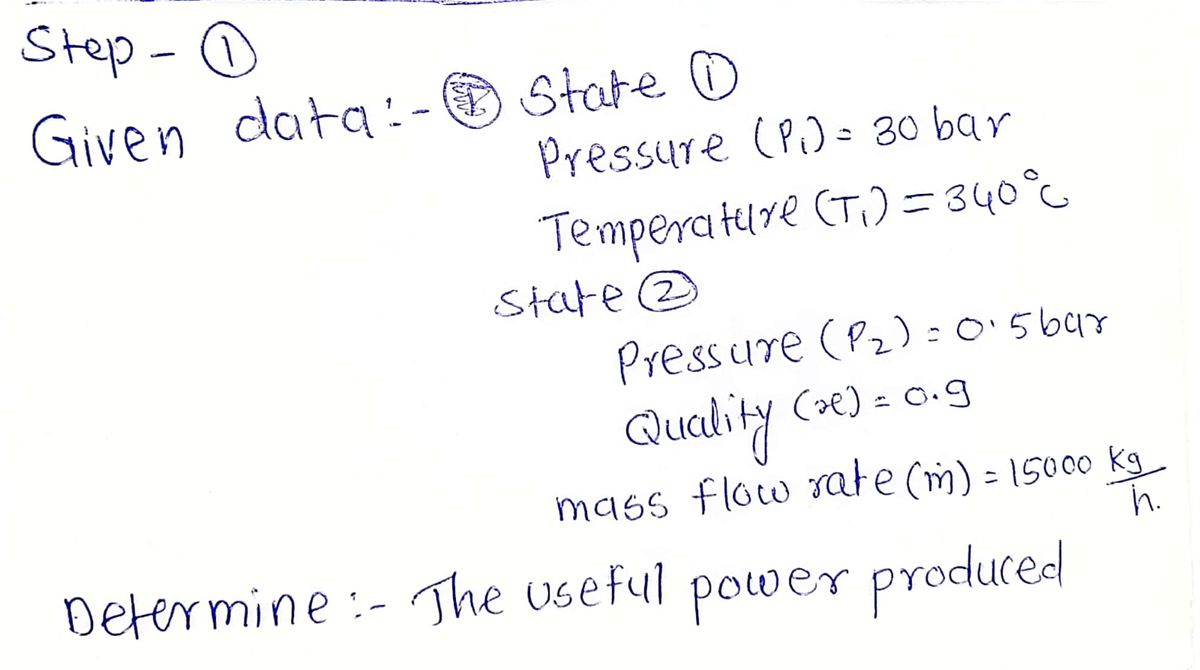 Step - ①
Given data:- State ①
Pressure (P₁) = 30 bar
Temperature (T₁) = 340°C
State ②
Pressure (P₂) = 0.5 bar
Quality (x) = 0.9
mass flow rate (ṁ) = 15000 Kg/h.
Determine :- The useful power produced